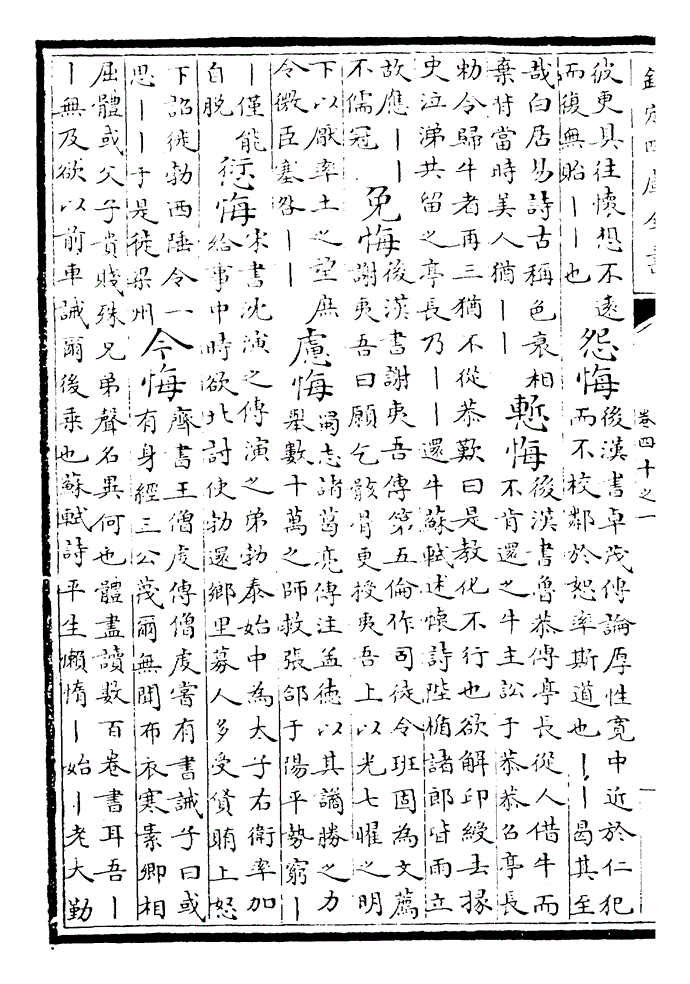 欽定四庫全書
卷四十之一
彼更具往懷想不遠
而復無貽丨丨也
怨悔
後漢書卓茂傳論厚性寬中近於仁犯
而不校鄰於恕率斯道也丨丨曷其至
哉白居易詩古稱色衰相
棄背當時美人猶丨丨
慙悔
後漢書魯恭傳亭長從人借牛而
不肯還之牛主訟于恭恭召亭長
勅令歸牛者再三猶不從恭歎曰是教化不行也欲解印綬去掾
史泣涕共留之亭長乃丨丨還牛蘇軾述懷詩陛楯諸郎皆雨立
故應丨丨
不儒冠
免悔
後漢書謝夷吾傳第五倫作司徒令班固為文薦
謝夷吾曰願乞骸骨更授夷吾上以光七曜之明
下以厭率土之望庶
令微臣塞咎丨丨
慮悔
蜀志諸葛亮傳注孟德以其譎勝之力
舉數十萬之師救張郃于陽平勢窮丨
丨僅能
自脫
愆悔
宋書沈演之傳演之弟勃泰始中為太子右衛率加
給事中時欲北討使勃還鄉里募人多受貨賄上怒
下詔徙勃西陲令一
思丨丨于是徙梁州
今悔
齊書王僧虔傳僧虔嘗有書誡子曰或
有身經三公蔑爾無聞布衣寒素卿相
屈體或父子貴賤殊兄弟聲名異何也體盡讀數百卷書耳吾丨
丨無及欲以前車誡爾後乘也蘇軾詩平生懶惰丨始丨老大勤